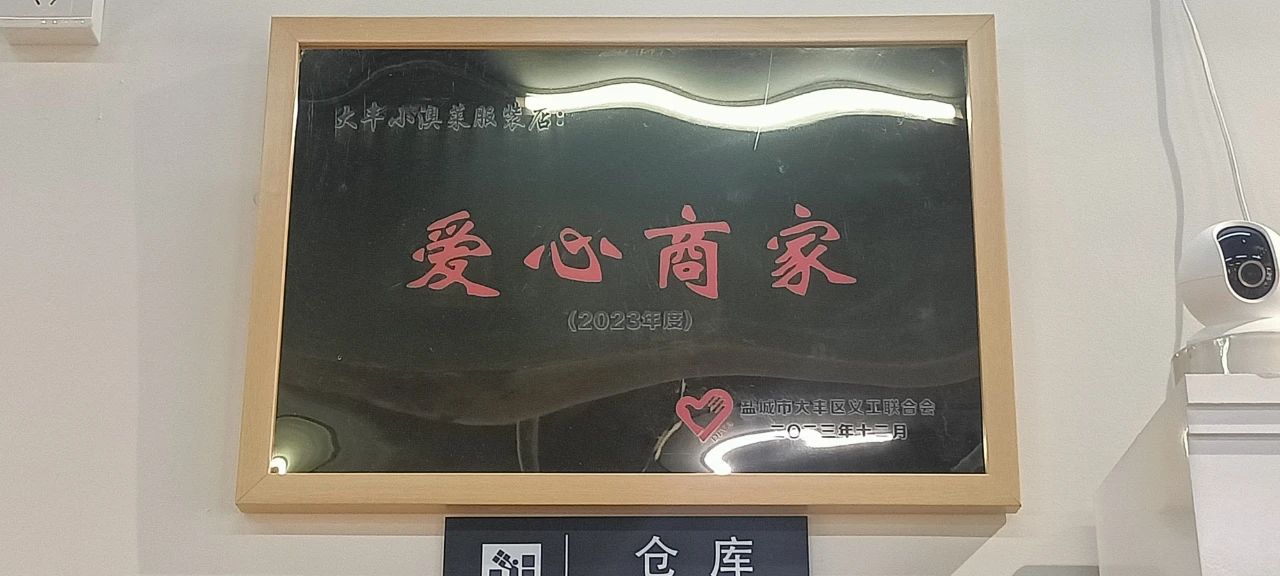 大丰小澳莱服装店：
爱心商家
(2023年度)
盐城市大丰区义工联合会
二〇二三年十二月
仓库